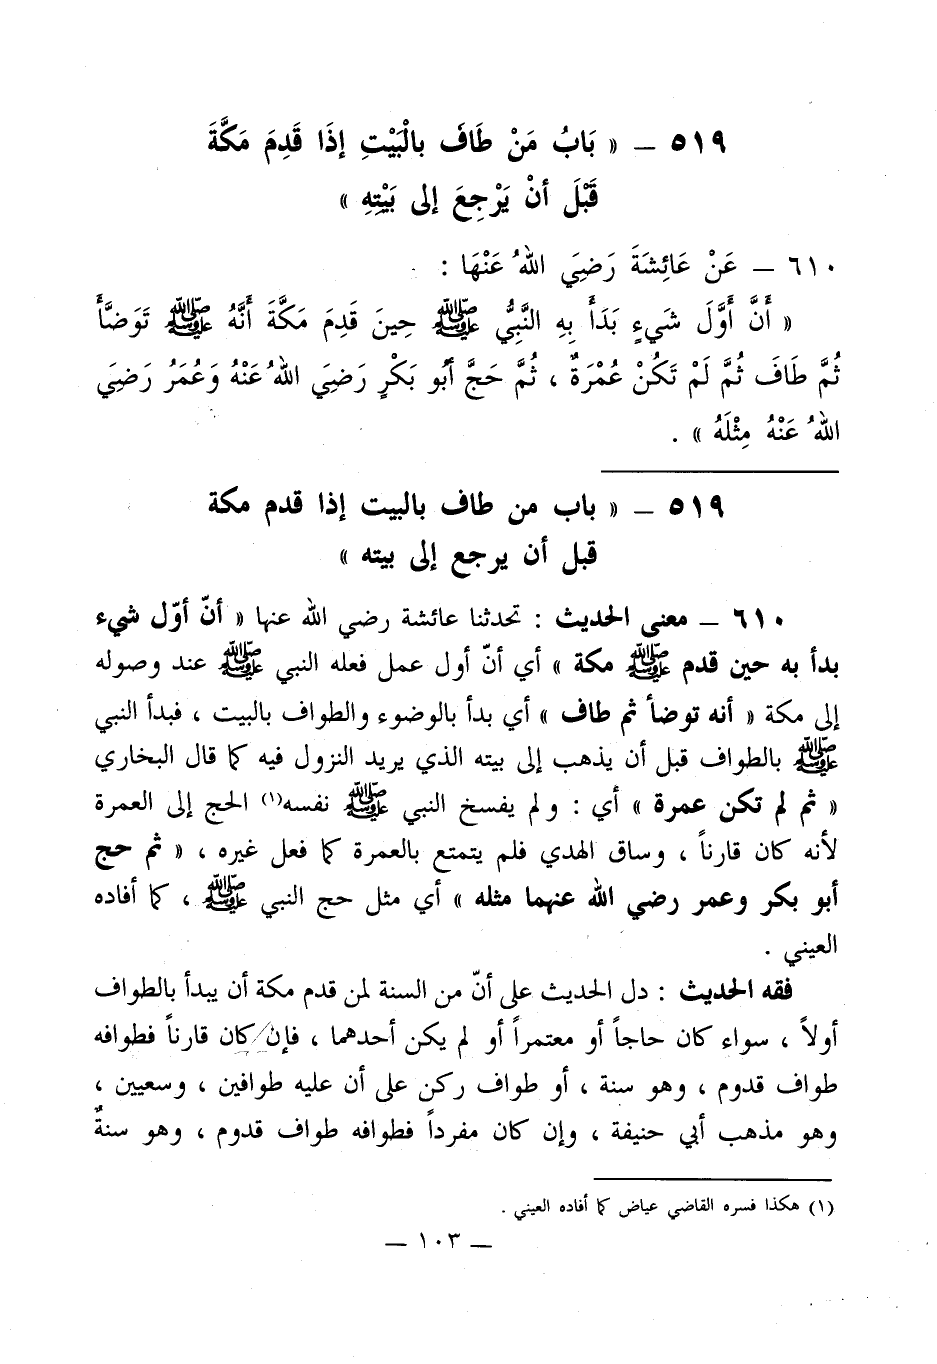 ٥١٩ — « بَابُ مَنْ طَافَ بالْبَيْتِ إذَا قَدِمَ مَكَّةَ
قَبْلَ أنْ يَرْجِعَ إلى بَيْتِهِ »
٦١٠ — عَنْ عَائِشَةَ رَضِيَ اللهُ عَنْهَا :
« أَنَّ أَوَّلَ شَيءٍ بَدَأَ بِهِ النَّبِيُّ ﷺ حِينَ قَدِمَ مَكَّةَ أَنَّهُ ﷺ تَوَضَّأَ
ثُمَّ طَافَ ثُمَّ لَمْ تَكُنْ عُمْرَةٌ ، ثُمَّ حَجَّ أَبُو بَكْرٍ رَضِيَ اللهُ عَنْهُ وَعُمَرُ رَضِيَ
اللهُ عَنْهُ مِثْلَهُ » .
٥١٩ — « باب من طاف بالبيت إذا قدم مكة
قبل أن يرجع إلى بيته »
٦١٠ — معنى الحديث : تحدثنا عائشة رضي الله عنها « أنّ أوّل شيء
بدأ به حين قدم ﷺ مكة » أي أنّ أول عمل فعله النبي ﷺ عند وصوله
إلى مكة « أنه توضأ ثم طاف » أي بدأ بالوضوء والطواف بالبيت ، فبدأ النبي
ﷺ بالطواف قبل أن يذهب إلى بيته الذي يريد النزول فيه كما قال البخاري
« ثم لم تكن عمرة » أي : ولم يفسخ النبي ﷺ نفسه(١) الحج إلى العمرة
لأنه كان قارناً ، وساق الهدي فلم يتمتع بالعمرة كما فعل غيره ، « ثم حج
أبو بكر وعمر رضي الله عنهما مثله » أي مثل حج النبي ﷺ ، كما أفاده
العيني .
فقه الحديث : دل الحديث على أنّ من السنة لمن قدم مكة أن يبدأ بالطواف
أولاً ، سواء كان حاجاً أو معتمراً أو لم يكن أحدهما ، فإن كان قارناً فطوافه
طواف قدوم ، وهو سنة ، أو طواف ركن على أن عليه طوافين ، وسعيين ،
وهو مذهب أبي حنيفة ، وإن كان مفرداً فطوافه طواف قدوم ، وهو سنةٌ
(١) هكذا فسره القاضي عياض كما أفاده العيني .
— ١٠٣ —